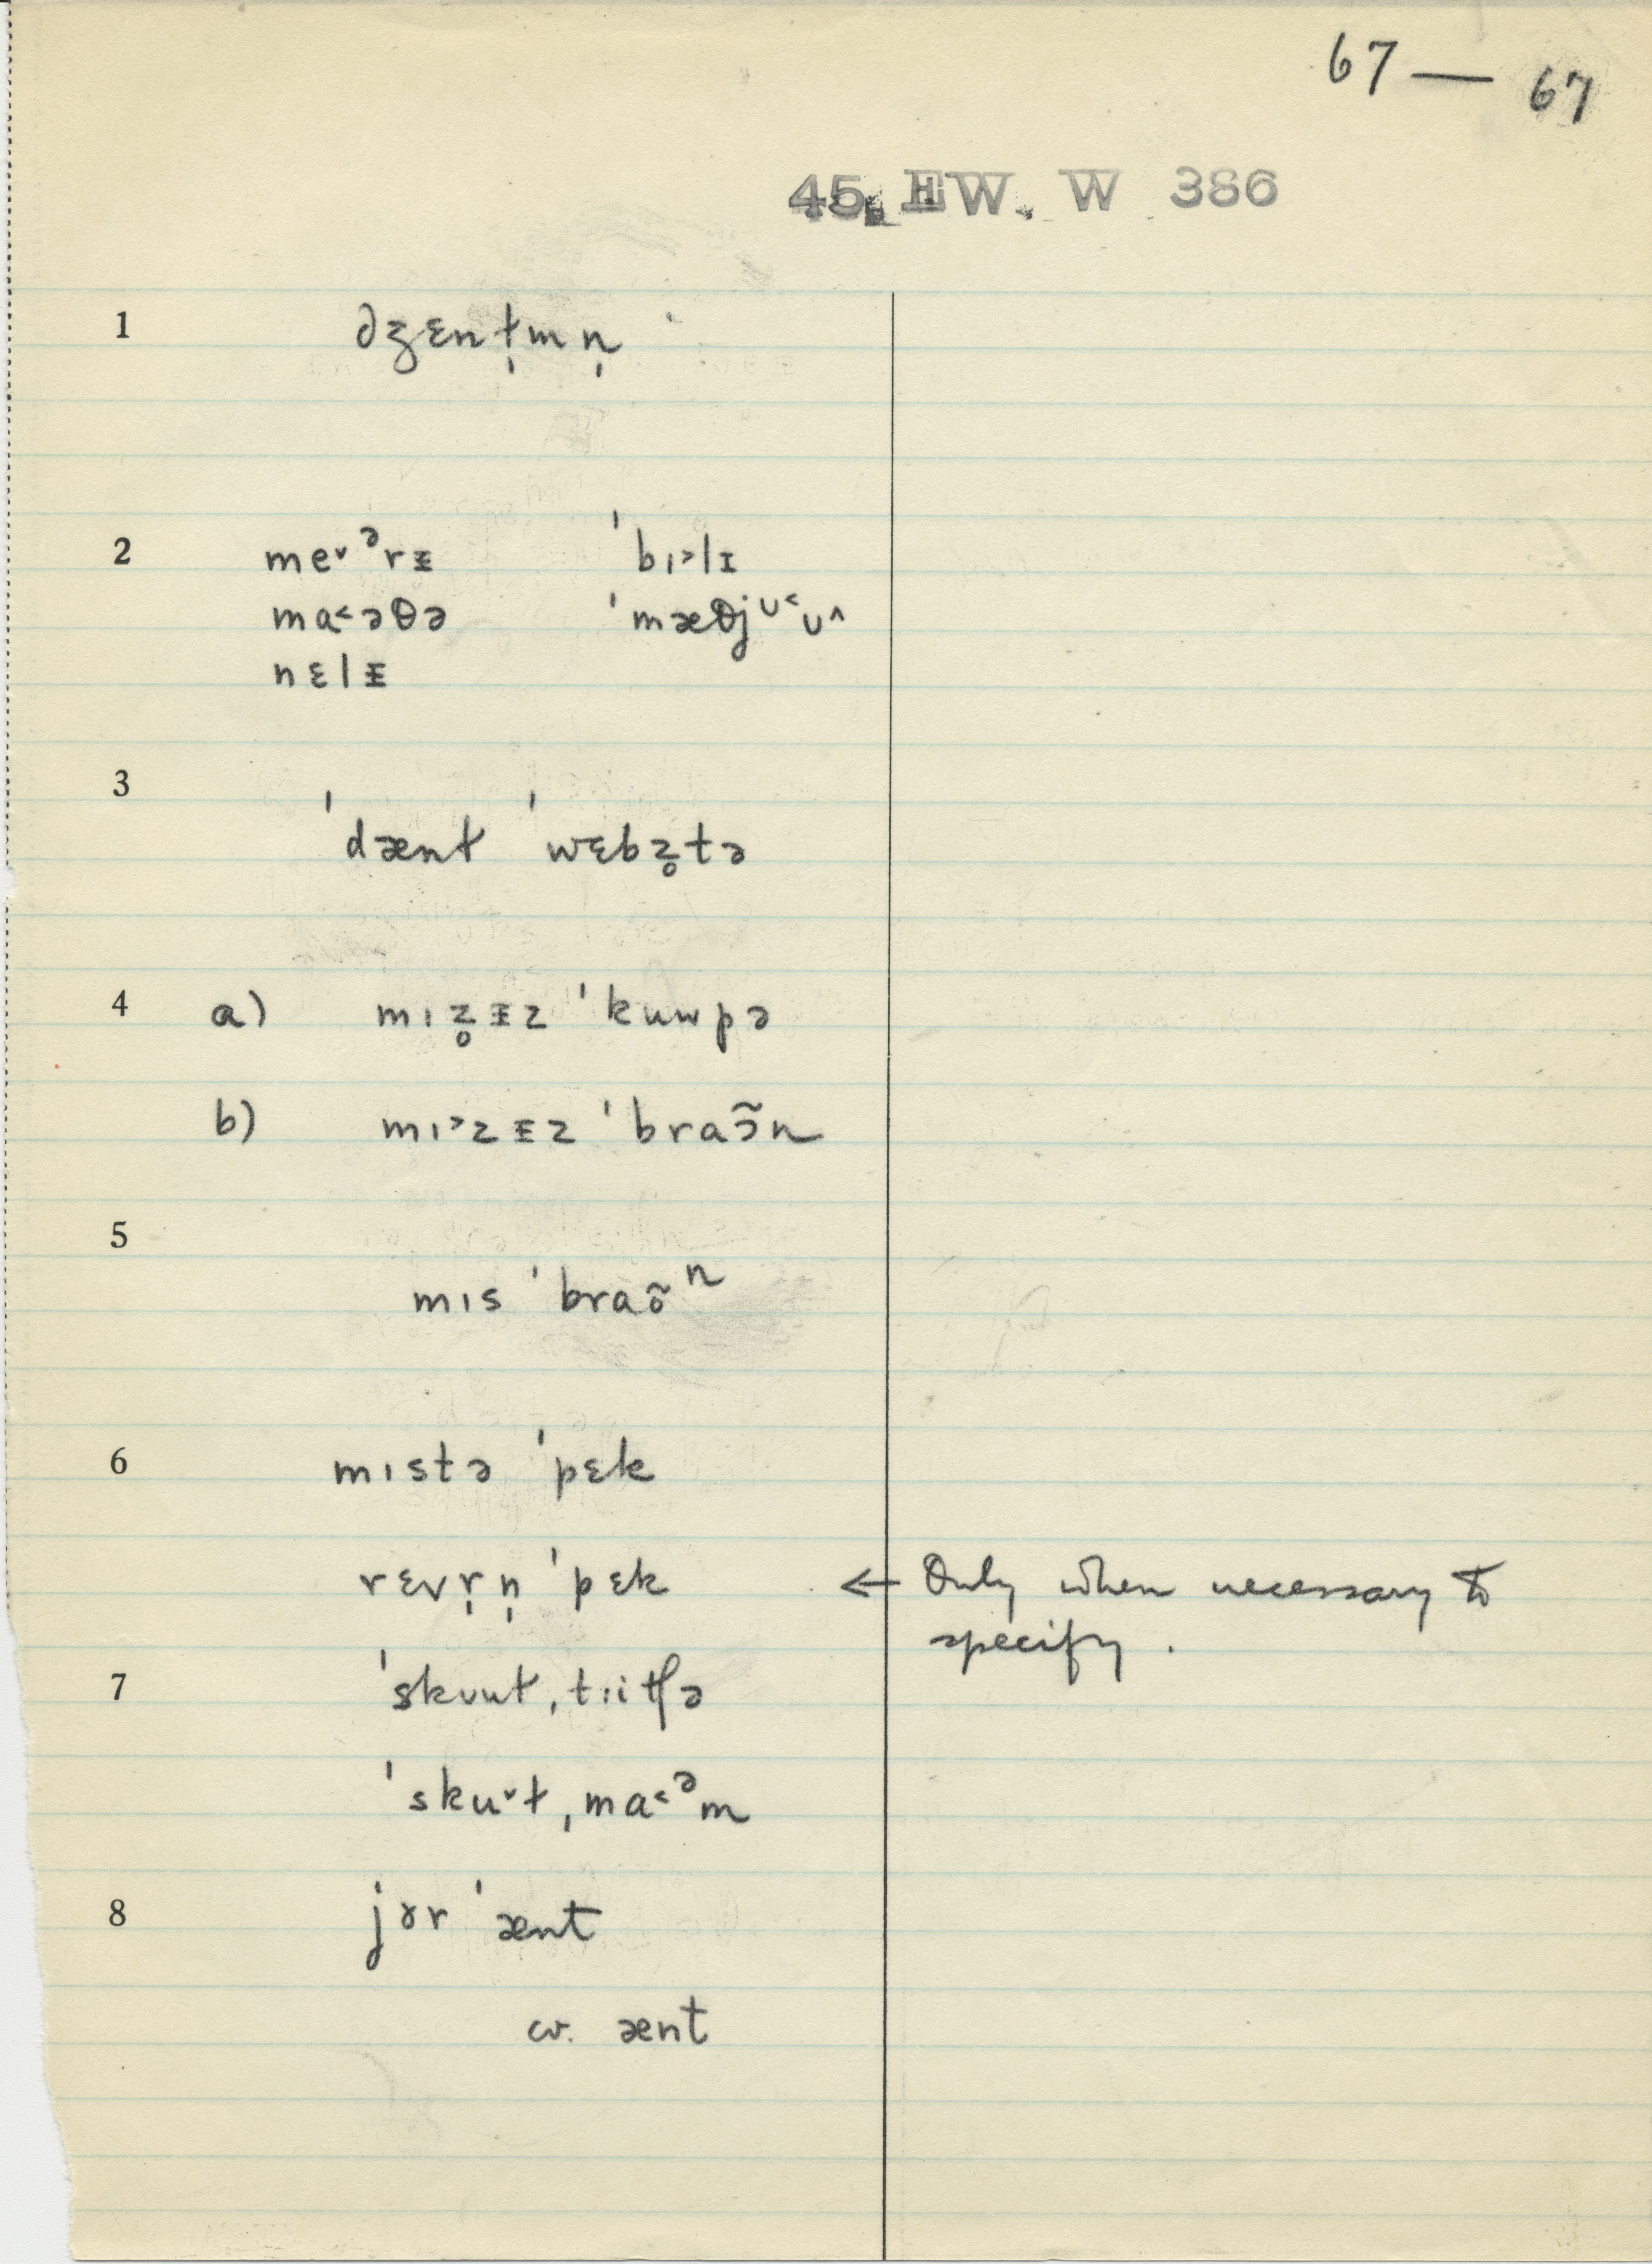 67 — 67
45. EW. W 386
1 dʒɛnt̩mn̩
2 me˅ᵊrᵻ ˈbɪ˃lɪ
ma˂əθə ˈmæθjᶷ˂ʊ˄
nɛlᵻ
3 ˈdænt ˈwɛbz̥tə
4 a) mɪz̥ᵻz ˈkuwpə
b) mɪ˃zᵻz ˈbraɔ̃n
5 mɪs ˈbraõⁿ
6 mɪstə ˈpɛk
rɛvr̩n̩ ˈpɛk ← Only when necessary to
specify.
7 ˈskuut ˌtɪitʃə
ˈsku˅t ˌma˂ᵊm
8 jɚr ˈænt
cv. ænt